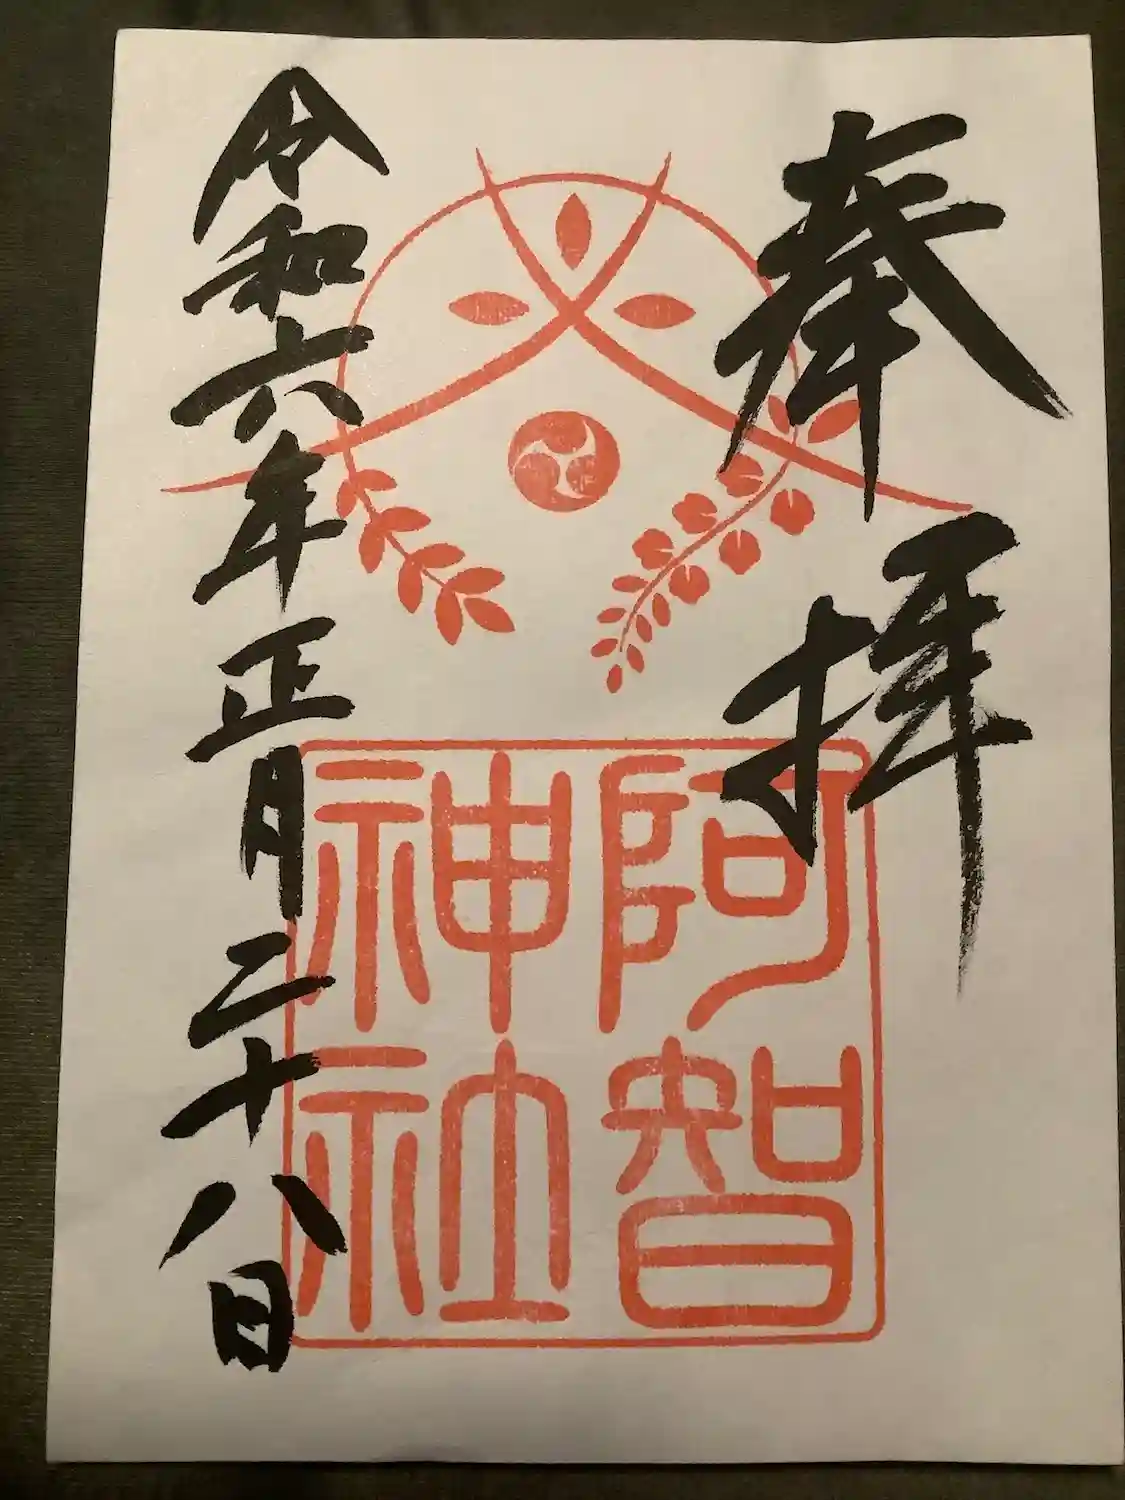 奉拝
阿智
神社
令和六年正月二十八日